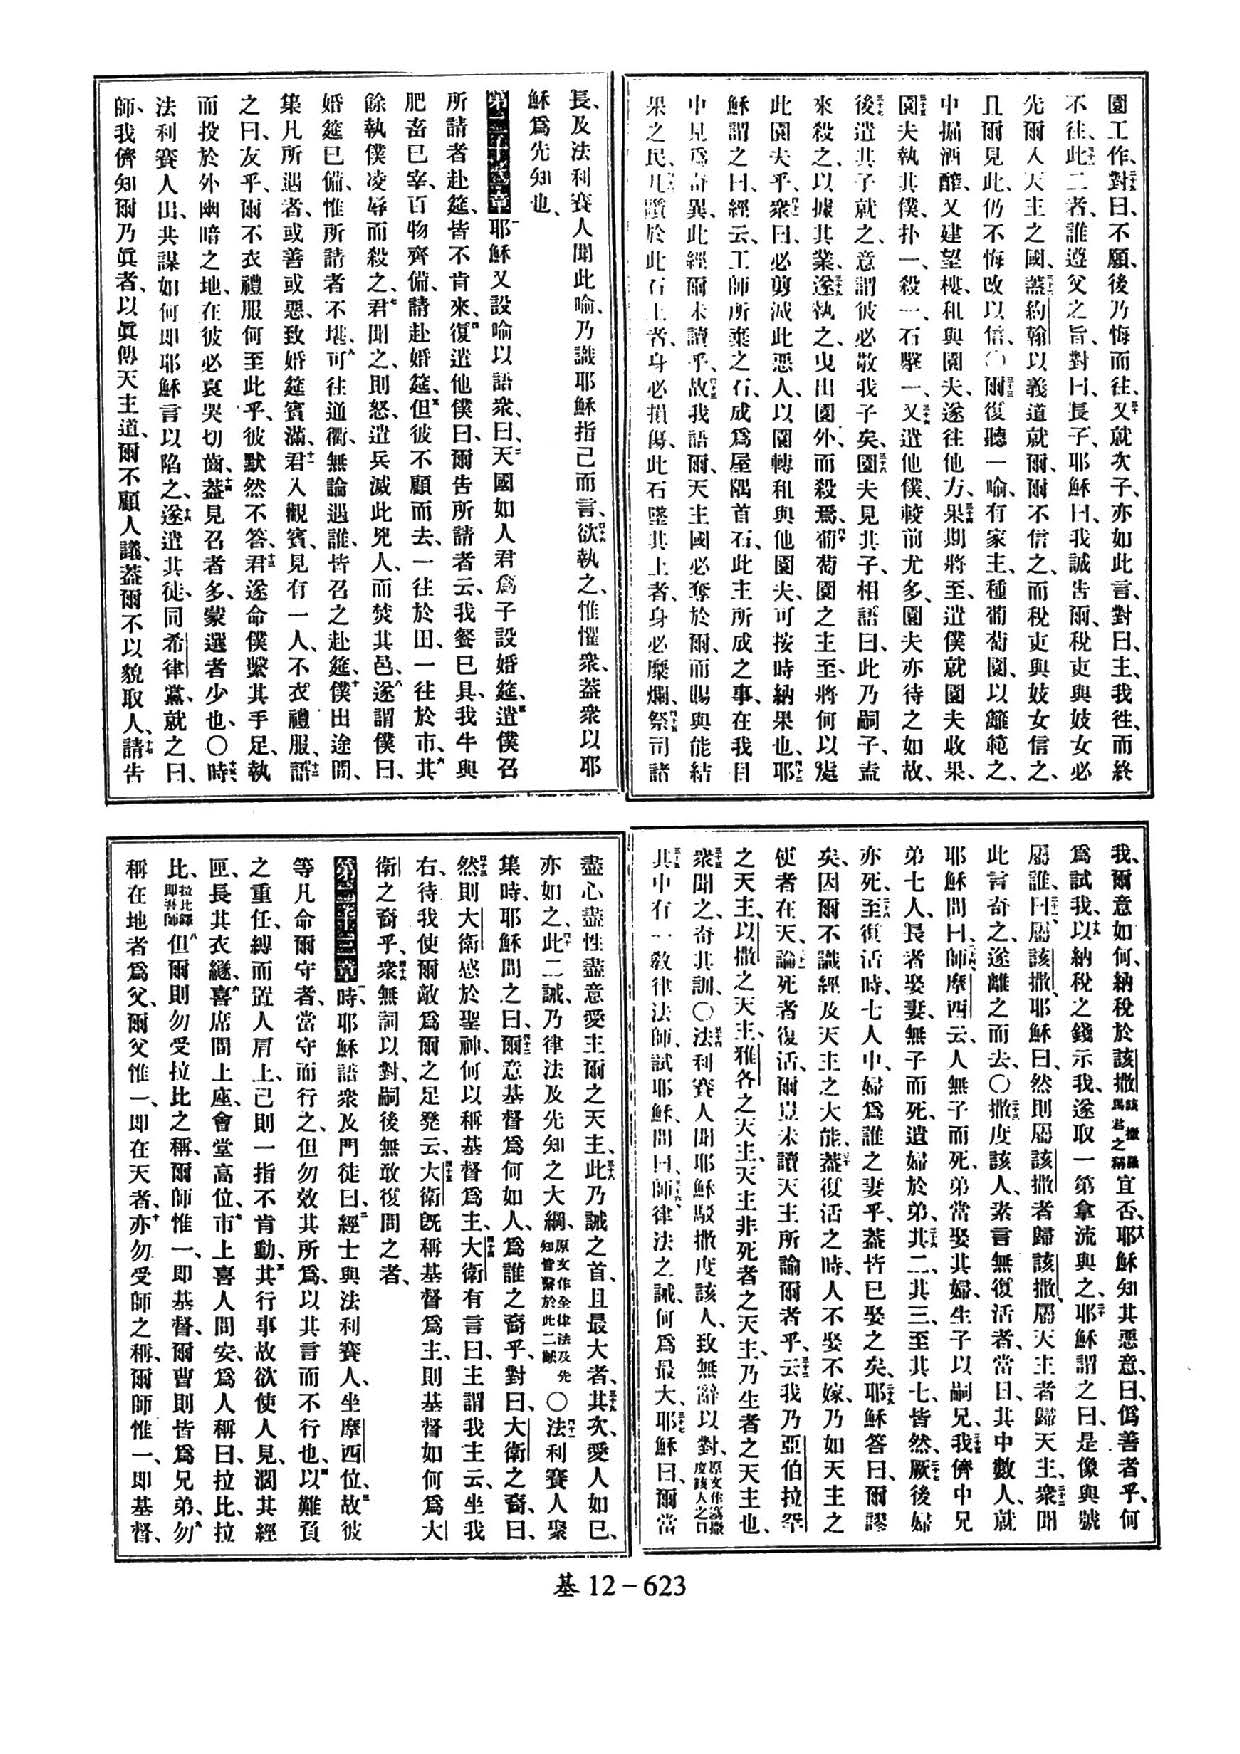 園工作、對曰、不願、後乃悔而往、又就次子、亦如此言、對曰、主、我往、而終
不往、此二者、誰遵父之旨、對曰、長子、耶穌曰、我誠告爾、稅吏與妓女必
先爾入天主之國、蓋約翰以義道就爾、爾不信之、而稅吏與妓女信之、
且爾見此、仍不悔改以信、○爾復聽一喻、有家主、種葡萄園、以籬範之、
中掘酒醡、又建望樓、租與園夫、遂往他方、果期將至、遣僕就園夫收果、
園夫執其僕、扑一、殺一、石擊一、又遣他僕、較前尤多、園夫亦待之如故、
後遣其子就之、意謂彼必敬我子矣、園夫見其子、相語曰、此乃嗣子、盍
來殺之、以據其業、遂執之、曳出園外、而殺焉、葡萄園之主至、將何以處
此園夫乎、衆曰、必剪滅此惡人、以園轉租與他園夫、可按時納果也、耶
穌謂之曰、經云、工師所棄之石、成爲屋隅首石、此主所成之事、在我目
中見爲奇異、此經爾未讀乎、故我語爾、天主國必奪於爾、而賜與能結
果之民、凡躓於此石上者、身必損傷、此石墜其上者、身必糜爛、祭司諸
長、及法利賽人聞此喻、乃識耶穌指己而言、欲執之、惟懼衆、蓋衆以耶
穌爲先知也、
第二十二章 耶穌又設喻以語衆、曰、天國如人君爲子設婚筵、遣僕召
所請者赴筵、皆不肯來、復遣他僕曰、爾告所請者云、我餐已具、我牛與
肥畜已宰、百物齊備、請赴婚筵、但彼不顧而去、一往於田、一往於市、其
餘執僕凌辱而殺之、君聞之、則怒、遣兵滅此兇人、而焚其邑、遂謂僕曰、
婚筵已備、惟所請者不堪、可往通衢、無論遇誰、皆召之赴筵、僕出途間、
集凡所遇者、或善或惡、致婚筵賓滿、君入觀賓、見有一人、不衣禮服、語
之曰、友乎、爾不衣禮服何至此乎、彼默然不答、君遂命僕繫其手足、執
而投於外幽暗之地、在彼必哀哭切齒、蓋見召者多、蒙選者少也、○時
法利賽人出、共謀如何即耶穌言以陷之、遂遣其徒、同希律黨、就之曰、
師、我儕知爾乃眞者、以眞傳天主道、爾不顧人議、蓋爾不以貌取人、請告
我、爾意如何、納稅於該撒該撒羅馬君之稱宜否、耶穌知其惡意、曰、僞善者乎、何
爲試我、以納稅之錢示我、遂取一第拿流與之、耶穌謂之曰、是像與號
屬誰、曰、屬該撒、耶穌曰、然則屬該撒者歸該撒、屬天主者歸天主、衆聞
此言奇之、遂離之而去、○撒度該人、素言無復活者、當日、其中數人、就
耶穌問曰、師、摩西云、人無子而死、弟當娶其婦、生子以嗣兄、我儕中兄
弟七人、長者娶妻、無子而死、遺婦於弟、其二、其三、至其七、皆然、厥後婦
亦死、至復活時、七人中、婦爲誰之妻乎、蓋皆已娶之矣、耶穌答曰、爾謬
矣、因爾不識經、及天主之大能、蓋復活之時、人不娶不嫁、乃如天主之
使者在天、論死者復活、爾豈未讀天主所諭爾者乎、云、我乃亞伯拉罕
之天主、以撒之天主、雅各之天主、天主非死者之天主、乃生者之天主也、
衆聞之、奇其訓、○法利賽人聞耶穌駁撒度該人、致無辭以對、原文作塞撒度該人之口
其中有一教律法師、試耶穌、問曰、師、律法之誡、何爲最大、耶穌曰、爾當
盡心盡性盡意愛主爾之天主、此乃誡之首、且最大者、其次、愛人如己、
亦如之、此二誡、乃律法及先知之大綱、原文作全律法及先知皆繫於此二誡○法利賽人聚
集時、耶穌問之曰、爾意基督爲何如人、爲誰之裔乎、對曰、大衛之裔、曰、
然則大衛感於聖神、何以稱基督爲主、大衛有言曰、主謂我主云、坐我
右、待我使爾敵爲爾之足凳云、大衛旣稱基督爲主、則基督如何爲大
衛之裔乎、衆無詞以對、嗣後無敢復問之者、
第二十三章 時、耶穌語衆及門徒曰、經士與法利賽人、坐摩西位、故彼
等凡命爾守者、當守而行之、但勿效其所爲、以其言而不行也、以難負
之重任、縛而置人肩上、己則一指不肯動、其行事故欲使人見、濶其經
匣、長其衣繸、喜席間上座、會堂高位、市上喜人問安、爲人稱曰、拉比、拉
比、拉比譯即吾師但爾則勿受拉比之稱、爾師惟一、即基督、爾曹則皆爲兄弟、勿
稱在地者爲父、爾父惟一、即在天者、亦勿受師之稱、爾師惟一、即基督、
基 12－623